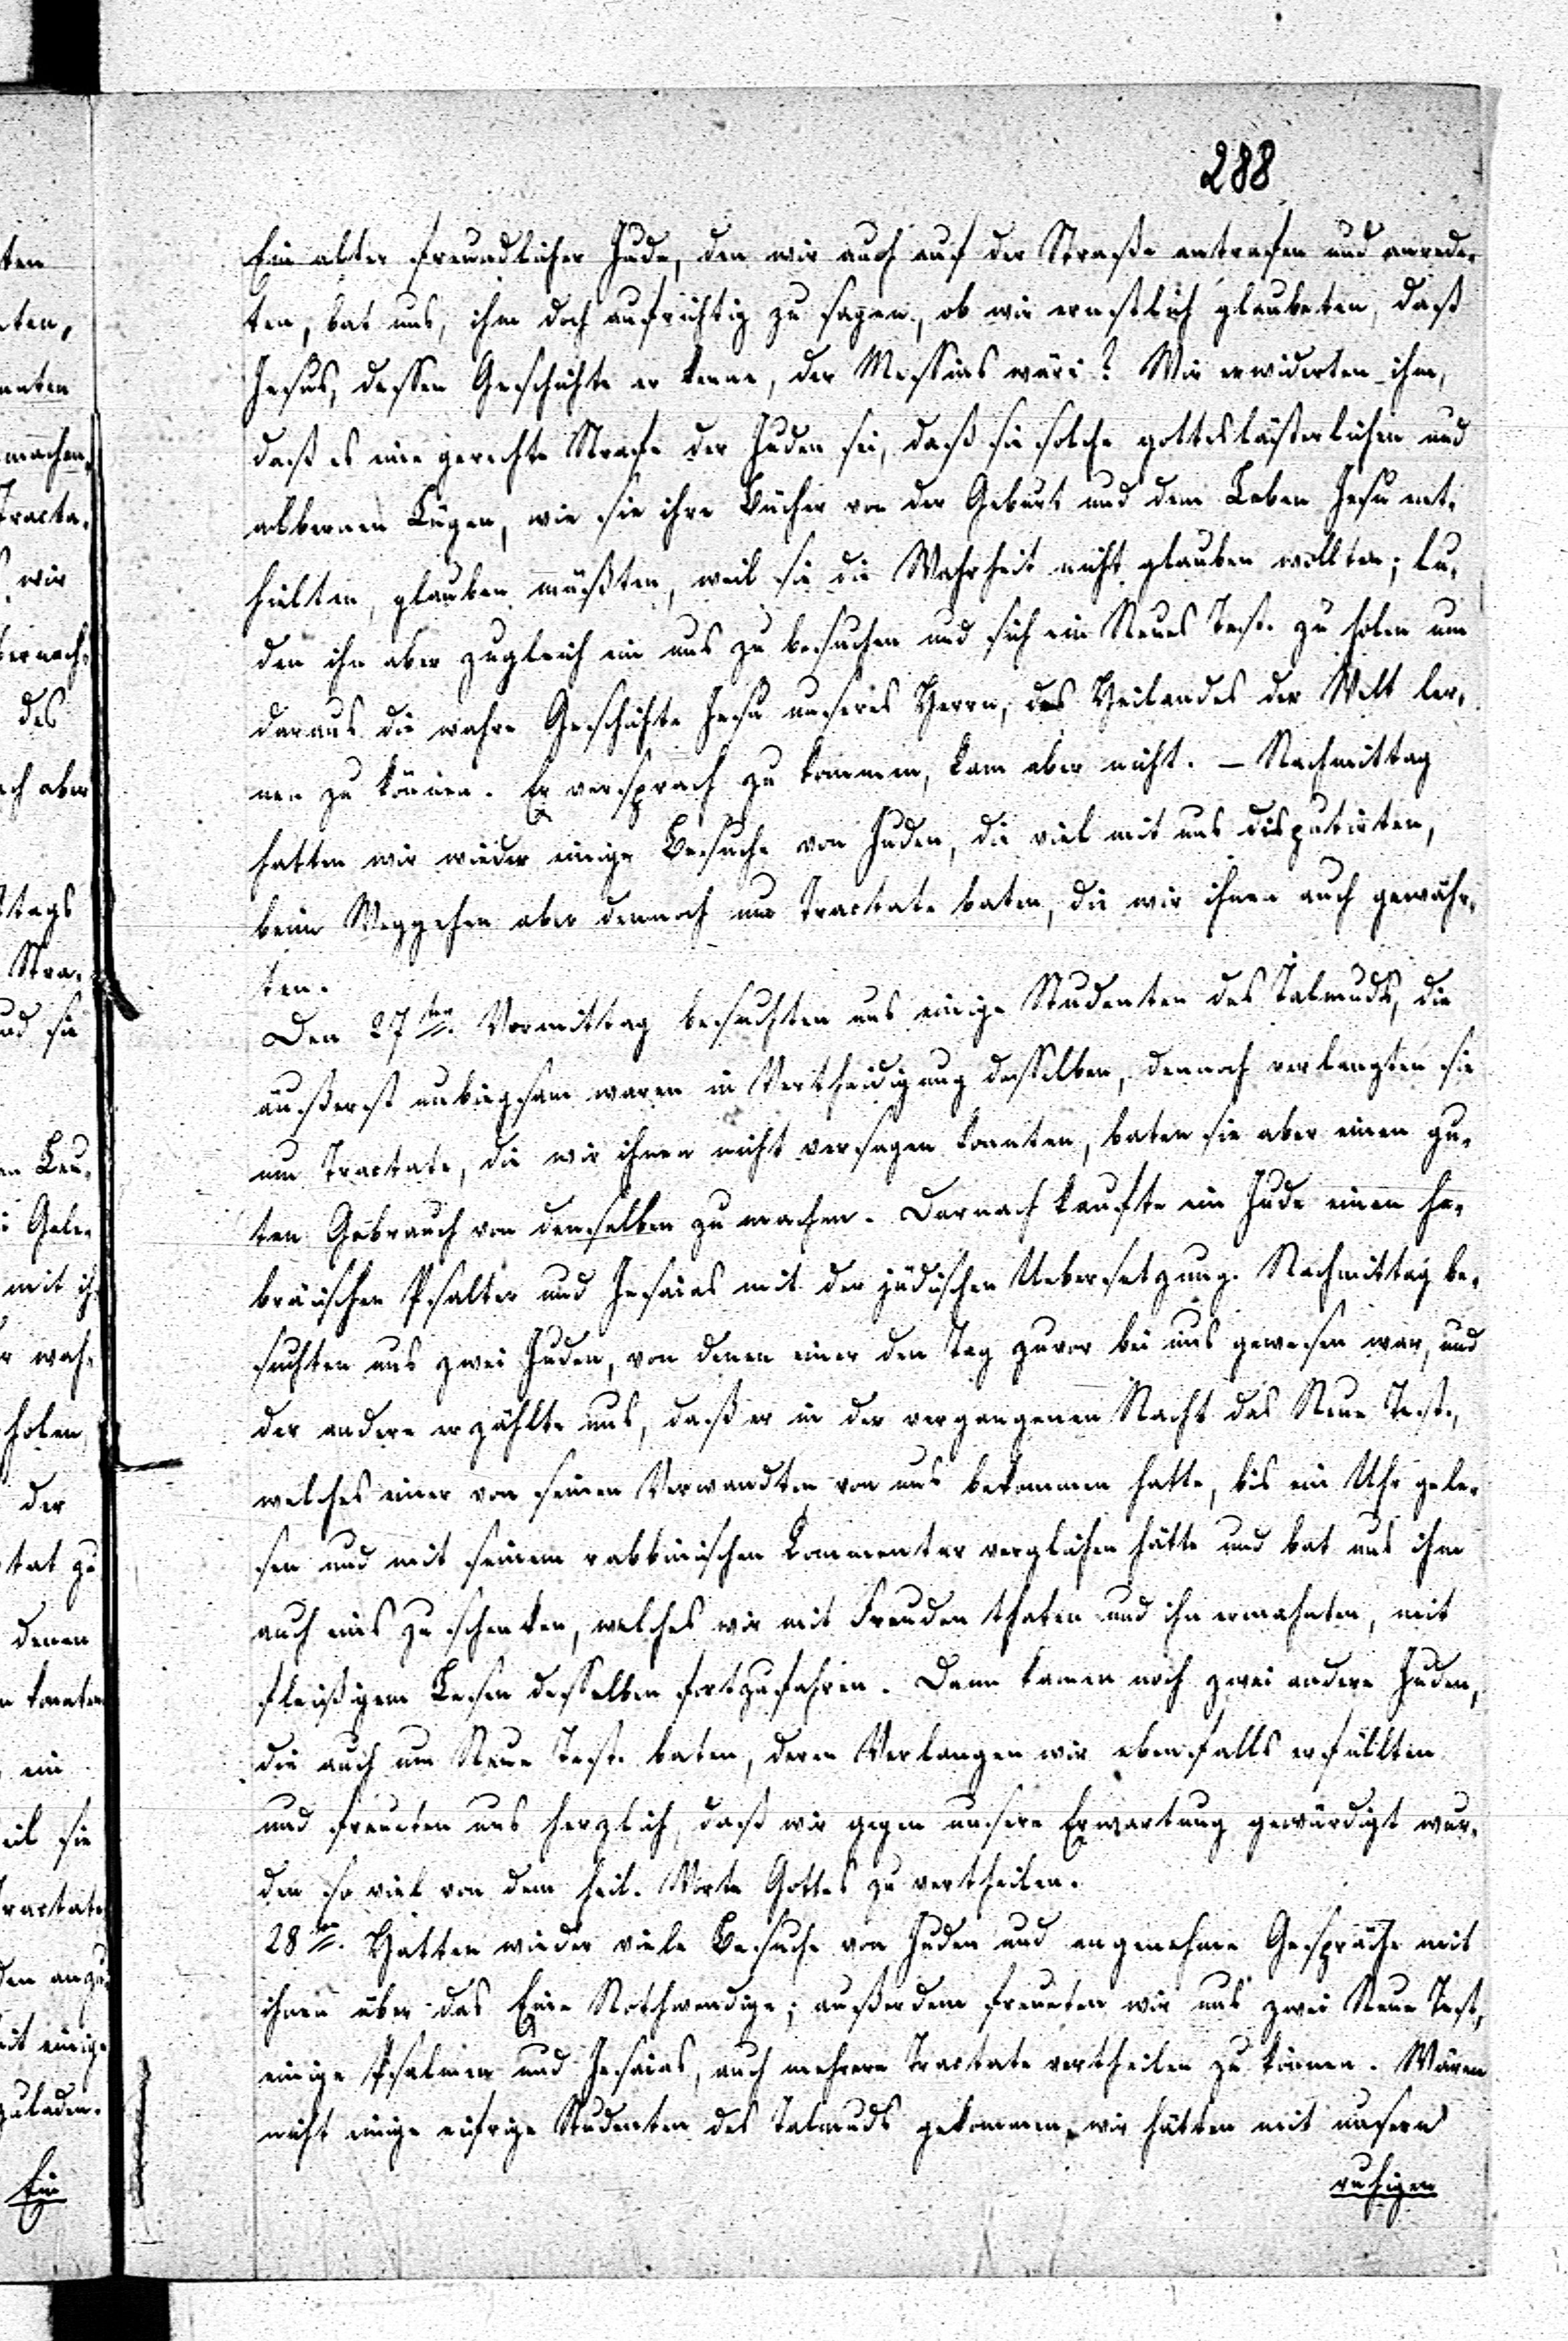 288
Ein alter freundlicher Jude, den wir auch auf der Straße antrafen und anrede-
ten, bat uns, ihm doch aufrichtig zu sagen, ob wir ernstlich glaubeten, daß
Jesus, dessen Geschichte er kenne, der Messias wäre? Wir erwiderten ihm,
daß es eine gerechte Strafe der Juden sei, daß sie solche gotteslästerlichen und
albernen Lügen, wie sie ihre Bücher von der Geburt und dem Leben Jesu ent-
hielten, glauben müßten, weil sie die Wahrheit nicht glauben wollten; lu-
den ihn aber zugleich ein uns zu besuchen und sich ein Neues Test. zu holen um
daraus die wahre Geschichte Jesu unseres Herrn, des Heilandes der Welt ler-
nen zu können. Er versprach zu kommen, kam aber nicht. – Nachmittag
hatten wir wieder einige Besuche von Juden, die viel mit uns disputirten,
beim Weggehen aber dennoch um Tractate baten, die wir ihnen auch gewähr-
ten.
Den 27ten. Vormittag besuchten uns einige Studenten des Talmuds, die
äußerst unbiegsam waren in Vertheidigung desselben, dennoch verlangten sie
um Tractate, die wir ihnen nicht versagen konnten, baten sie aber einen gu-
ten Gebrauch von denselben zu machen. Darnach kaufte ein Jude einen he-
bräischen Psalter und Jesaias mit der jüdischen Uebersetzung. Nachmittag be-
suchten uns zwei Juden, von denen einer den Tag zuvor bei uns gewesen war, und
der andere erzählte uns, daß er in der vergangenen Nacht das Neue Test.,
welches einer von seinen Verwandten von uns bekommen hatte, bis ein Uhr gele-
sen und mit seinem rabbinischen Commentar verglichen hätte und bat uns ihm
auch eins zu schenken, welches wir mit Freuden thaten und ihn ermahnten, mit
fleißigem Lesen desselben fortzufahren. Dann kamen noch zwei andere Juden,
die auch um Neue Test. baten, deren Verlangen wir ebenfalls erfüllten
und freueten uns herzlich, daß wir gegen unsere Erwartung gewürdigt wur-
den so viel von dem heil. Worte Gottes zu vertheilen.
28ten. Hatten wieder viele Besuche von Juden und angenehme Gespräche mit
ihnen über das Eine Nothwendige; außerdem freueten wir uns zwei Neue Test,
einige Psalmen und Jesaias, auch mehrere Tractate vertheilen zu können. Wären
nicht einige eifrige Studenten des Talmuds gekommen, wir hätten mit unsern
ruhigen